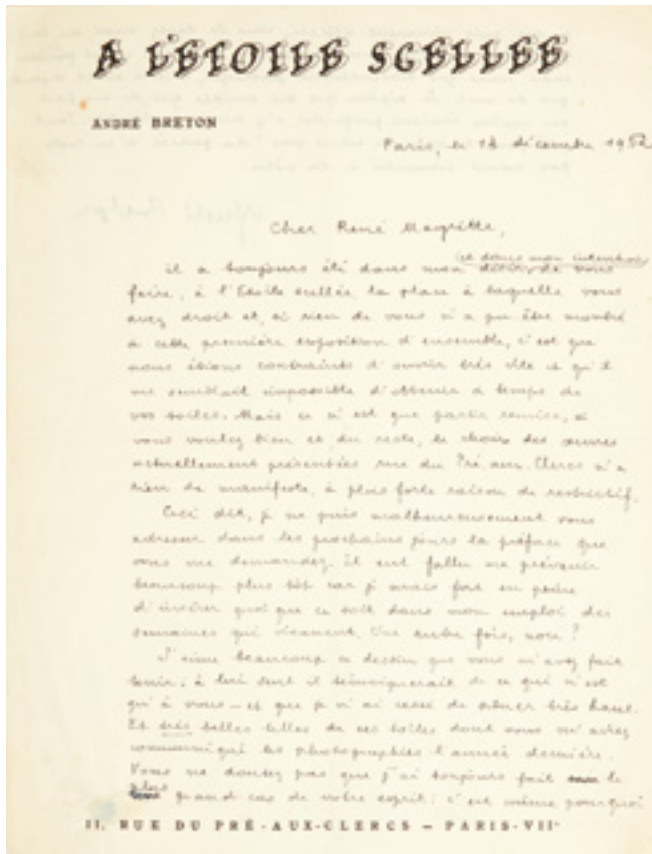 A L'ÉTOILE SCELLÉE
ANDRÉ BRETON
Paris, le 18 décembre 1952
Cher René Magritte,
et dans mon intention
il a toujours été dans mon désir de vous
faire, à l'Étoile scellée, la place à laquelle vous
avez droit et, si rien de vous n'a pu être montré
à cette première exposition d'ensemble, c'est que
nous étions contraints d'ouvrir très vite et qu'il
me semblait impossible d'obtenir à temps de
vos toiles. Mais ce n'est que partie remise, si
vous voulez bien et, du reste, le choix des œuvres
actuellement présentées rue du Pré-aux-Clercs n'a
rien de manifeste, à plus forte raison de restrictif.
Ceci dit, je ne puis malheureusement vous
adresser dans les prochains jours la préface que
vous me demandez. Il eût fallu me prévenir
beaucoup plus tôt car je serais fort en peine
d'insérer quoi que ce soit dans mon emploi des
semaines qui viennent. Une autre fois, non ?
J'aime beaucoup ce dessin que vous m'avez fait
tenir : à lui seul il témoignerait de ce qui n'est
qu'à vous — et que je n'ai cessé de situer très haut.
Et très belles telles de ces toiles dont vous m'aviez
communiqué les photographies l'année dernière.
Vous ne doutez pas que j'ai toujours fait le
plus grand cas de votre esprit : c'est même pourquoi
11, RUE DU PRÉ-AUX-CLERCS — PARIS-VIIe